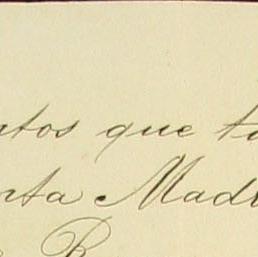 atos que ta
nta Mad
B